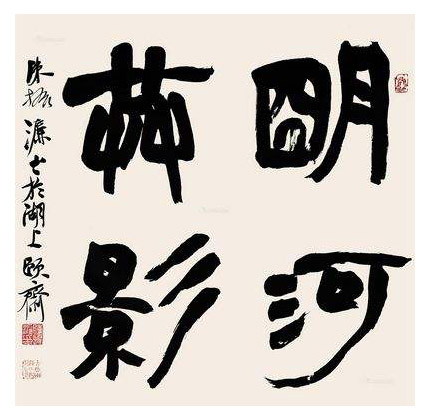 明河
共影
陳振濂書於湖上頤齋